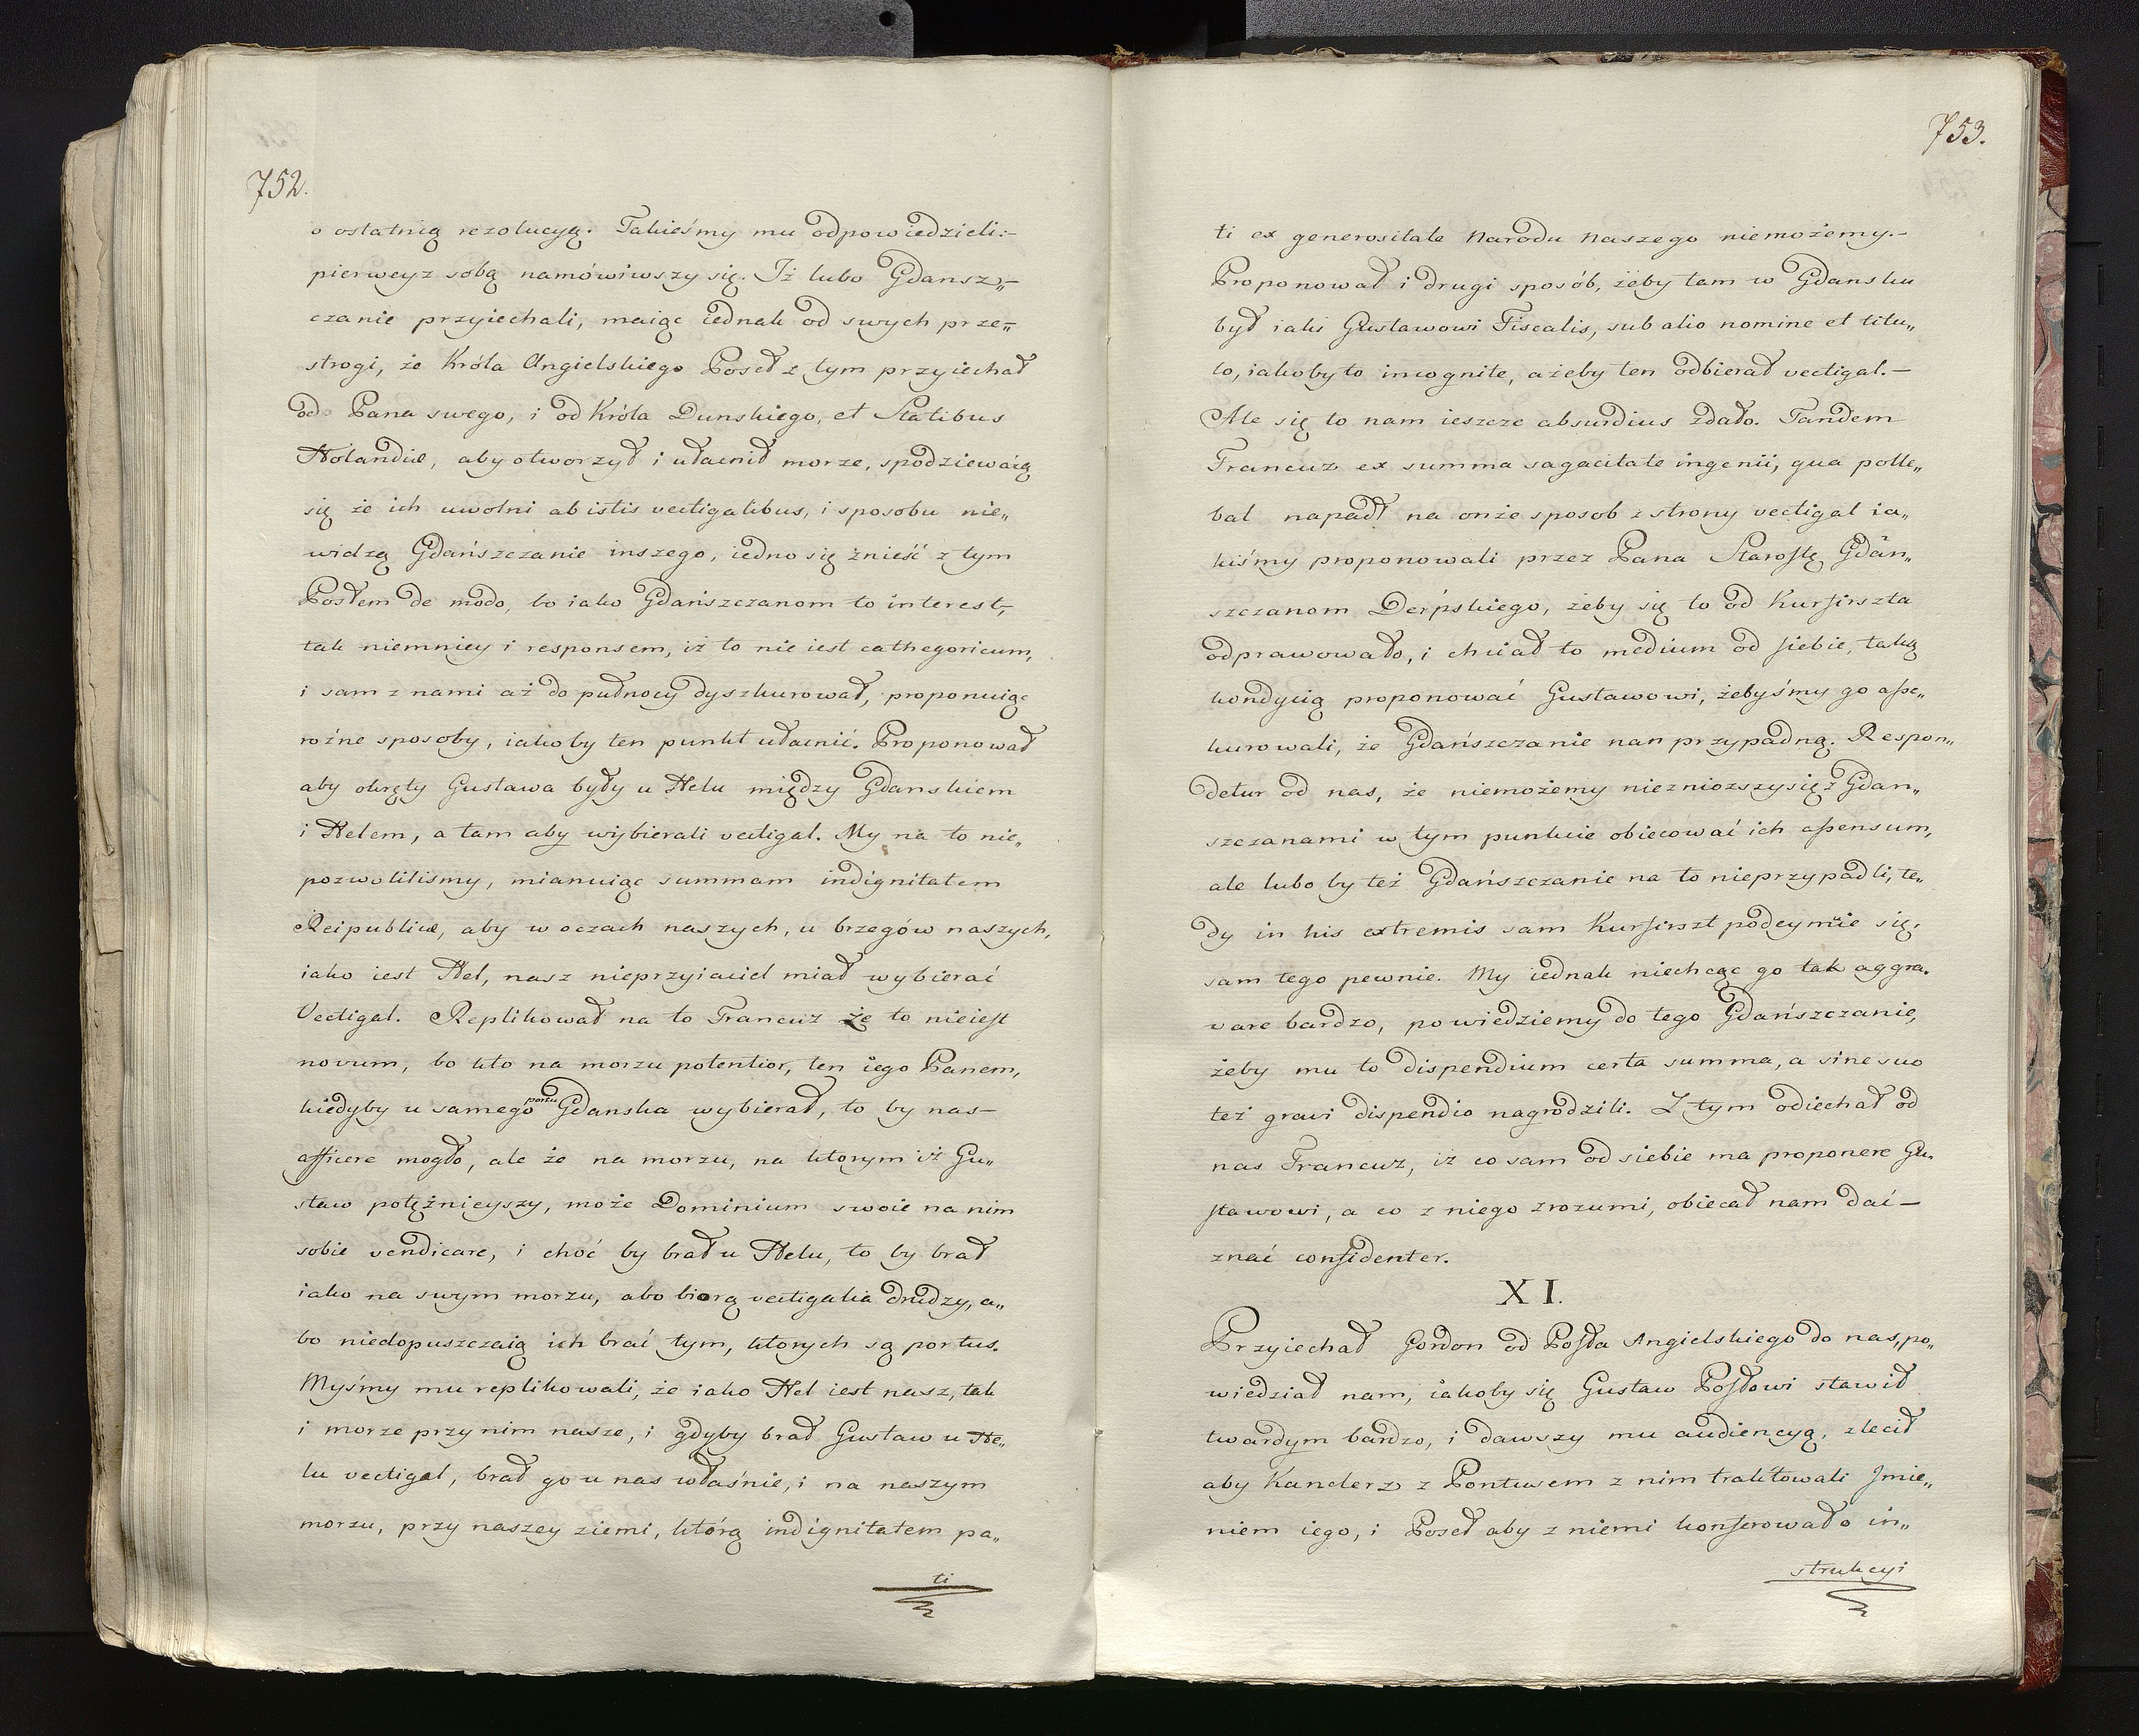 752.
o ostatnią rezolucyą. Takieśmy mu odpowiedzieli:-
pierwey z sobą namówiwszy się. Iż lubo Gdansz„-
czanie przyiechali, maiąc iednak od swych prze„-
strogi, że Króla Angielskiego Poseł z tym przyiechał
od Pana swego, i od Króla Dunskiego, et Statibus
Holandiæ, aby otworzył i ułacnił morze, spodziewáią
się że ich uwolni ab istis vectigalibus, i sposobu nie„
widzą Gdańszczanie inszego, iedno się znieść z tym
Posłem de modo, bo iako Gdańszczanom to interest,
tak niemniey i responsem, iż to nie iest cathegoricum,
i sam z nami aż do pułnocy dyszkurował, proponuiąc
rożne sposoby, iakoby ten punkt ułacnić. Proponował
aby okręty Gustawa były u Helu między Gdanskiem
i Helem, a tam aby wybierali vectigal. My na to nie„
pozwolilismy, mianuiąc summam indignitatem
Reipublicæ, aby w oczach naszych, u brzegów naszych,
iako iest Hel, nasz nieprzyiaciel miał wybierać
Vectigal. Replikował na to Francuz że to nieiest
novum, bo kto na morzu potentior, ten iego Panem,
kiedyby u samego portu Gdanska wybierał, to by nas-
afficere mogło, ale że na morzu, na ktorym iż Gu„
staw potężnieyszy, może Dominium swoie na nim
sobie vendicare, i choć by brał u Helu, to by brał
iako na swym morzu, abo biorą vectigalia drudzy, a„
bo niedopuszczaią ich brać tym, ktorych są portus.
Myśmy mu replikowali, że iako Hel iest nasz, tak
i morze przy nim nasze, i gdyby brał Gustaw u He„
lu vectigal, brał go u nas właśnie, i na naszym
morzu, przy naszey ziemi, którą indignitatem pa„
ti
753.
ti ex generositate Narodu Naszego niemożemy.-
Proponował i drugi sposób, żeby tam w Gdansku
był iakis Gustawowi Fiscalis, sub alio nomine et titu„
lo, iakoby to incognite, a żeby ten odbierał vectigal.-
Ale się to nam ieszcze absurdius zdało. Tandem
Francuz ex summa sagacitate ingenii, qua polle„
bat napadł na onże sposob z strony vectigal ia„
kiśmy proponowali przez Pana Starostę Gdan„
szczanom Derpskiego, żeby się to od Kurfirszta
odprawowało, i chciał to medium od siebie, taką
kondycią proponować Gustawowi, żebyśmy go asse„
kurowali, że Gdańszczanie nan przypadną. Respon„
detur od nas, że niemożemy niezniozszy się z Gdan„
szczanami w tym punkcie obiecować ich assensum,
ale lubo by też Gdańszczanie na to nieprzypadli, te„
dy in his extremis sam Kurfirszt podeymie się,
sam tego pewnie. My iednak niechcąc go tak aggra„
vare bardzo, powiedziemy do tego Gdańszczanie,
żeby mu to dispendium certa summa, a sine suo
też gravi dispendio nagrodzili. Z tym odiechał od
nas Francuz, iż co sam od siebie ma proponere Gu„
stawowi, a co z niego zrozumi, obiecał nam dać-
znać confidenter.
XI.
Przyiechał Gordon od Posła Angielskiego do nas, po„
wiedział nam, iakoby się Gustaw Posłowi stawił
twardym bardzo, i dawszy mu audiencyą, zlecił
aby Kanclerz z Pontusem z nim traktowali Imie„
niem iego, i Poseł aby z niemi konferował o in„
strukcyi